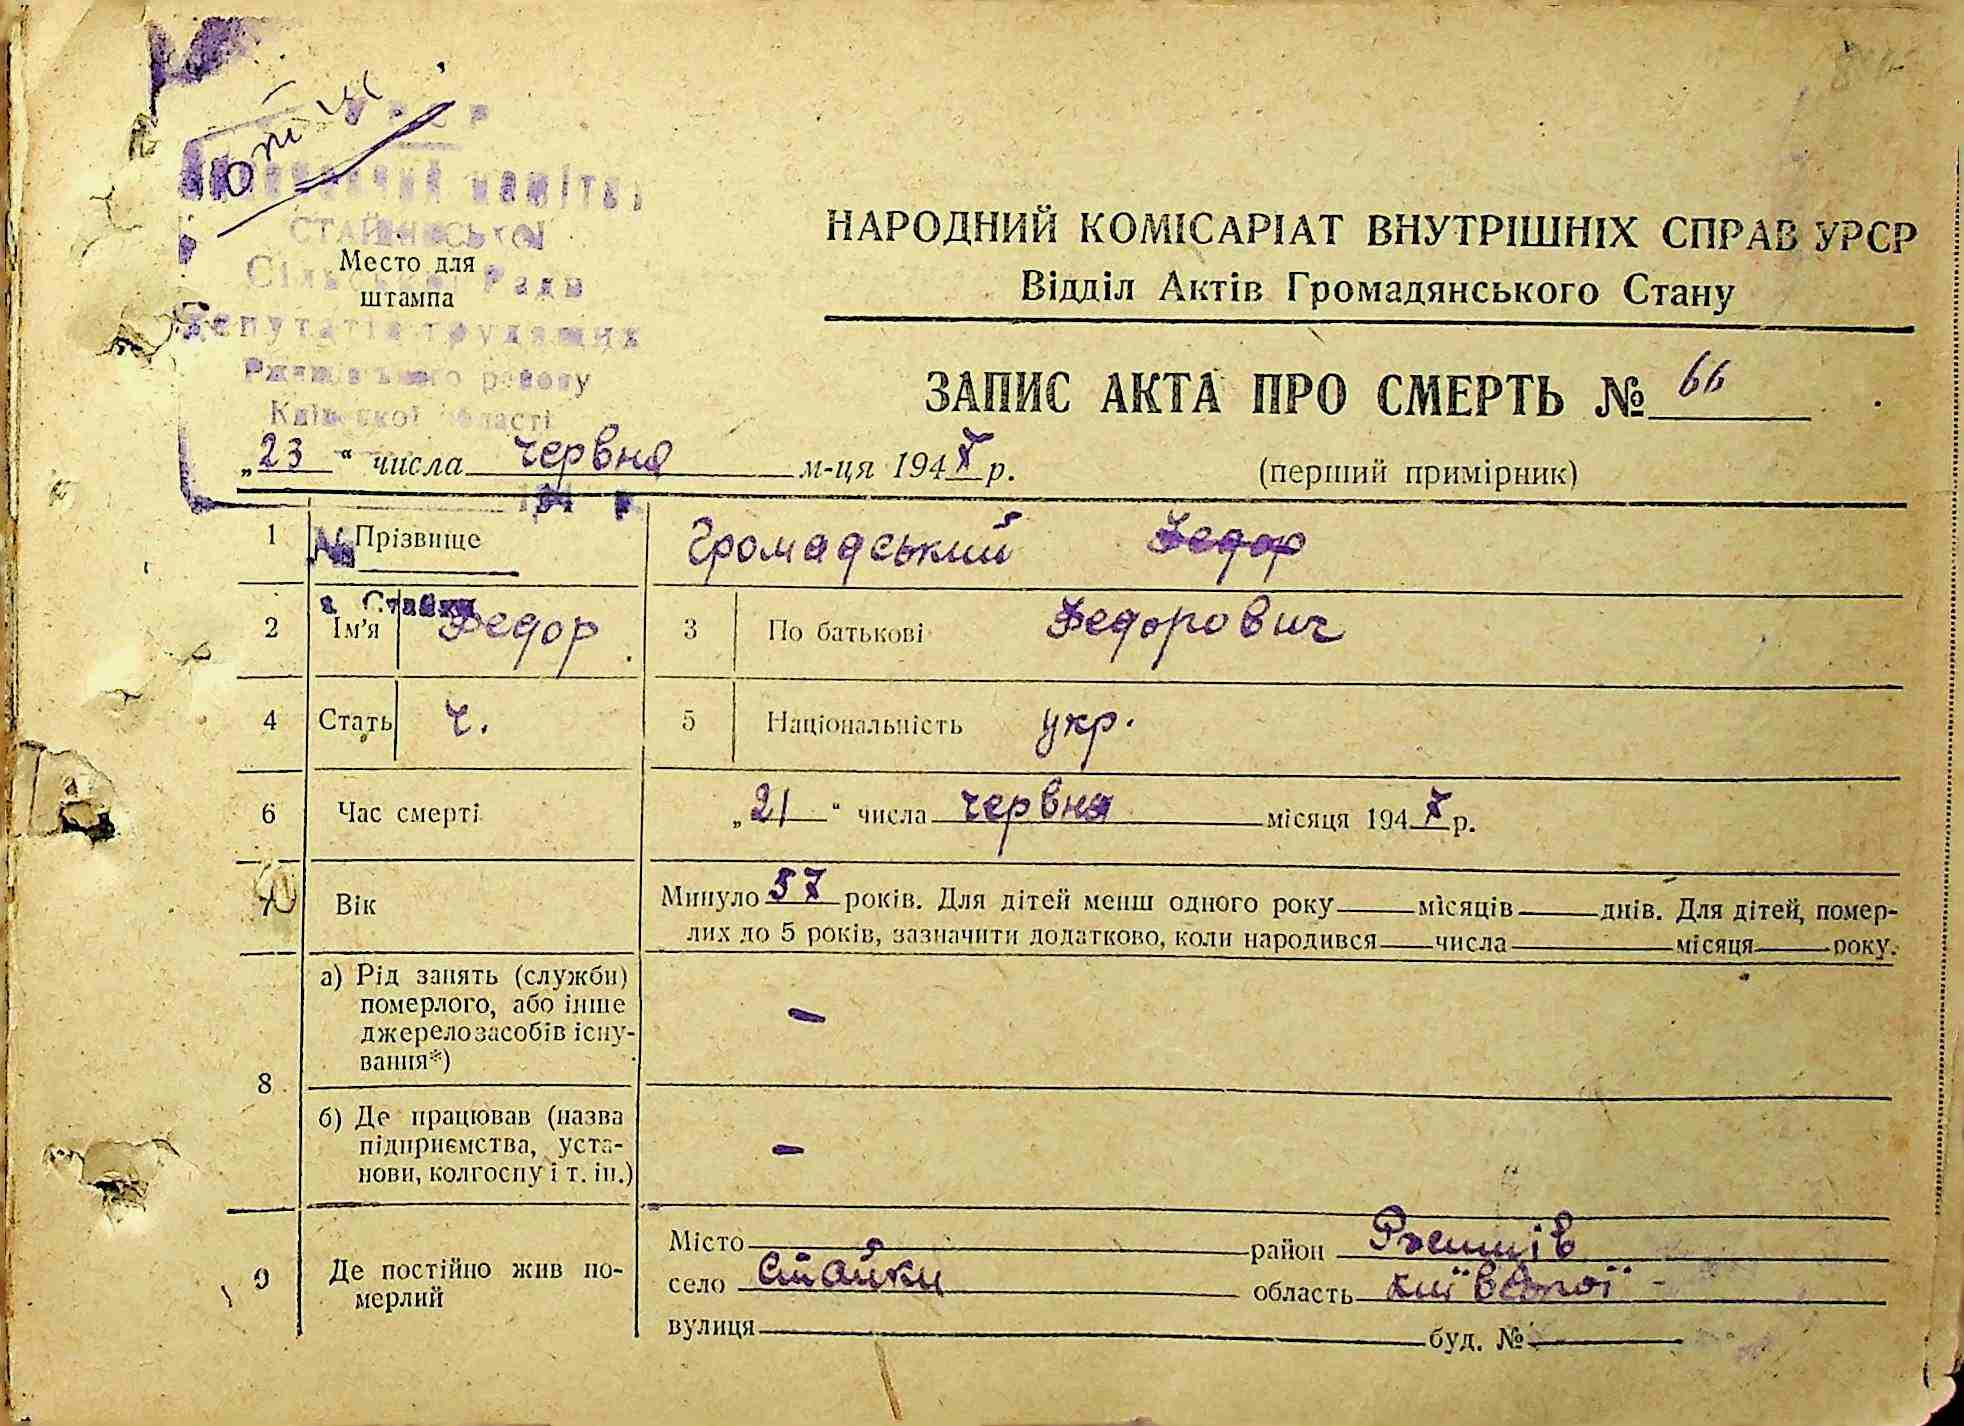 СТАЙКІВСЬКОЇ
Сільської Ради
депутатів трудящих
Ржищівського району
Київської області
Место для
штампа
НАРОДНИЙ КОМІСАРІАТ ВНУТРІШНІХ СПРАВ УРСР
Відділ Актів Громадянського Стану
ЗАПИС АКТА ПРО СМЕРТЬ № 66
„23“ числа червня м-ця 1947 р.
(перший примірник)
1 Прізвище Громадський Федор
с. Стайки
2 Ім’я Федор 3 По батькові Федорович
4 Стать ч. 5 Національність укр.
6 Час смерті „21“ числа червня місяця 1947 р.
7 Вік Минуло 57 років. Для дітей менш одного року місяців днів. Для дітей, помер-
лих до 5 років, зазначити додатково, коли народився числа місяця року.
а) Рід занять (служби)
померлого, або інше
джерело засобів існу-
вання*) –
8
б) Де працював (назва
підприємства, уста-
нови, колгоспу і т. ін.) –
9 Де постійно жив по-
мерлий
Місто район Ржищів
село Стайки область Київської
вулиця буд. №